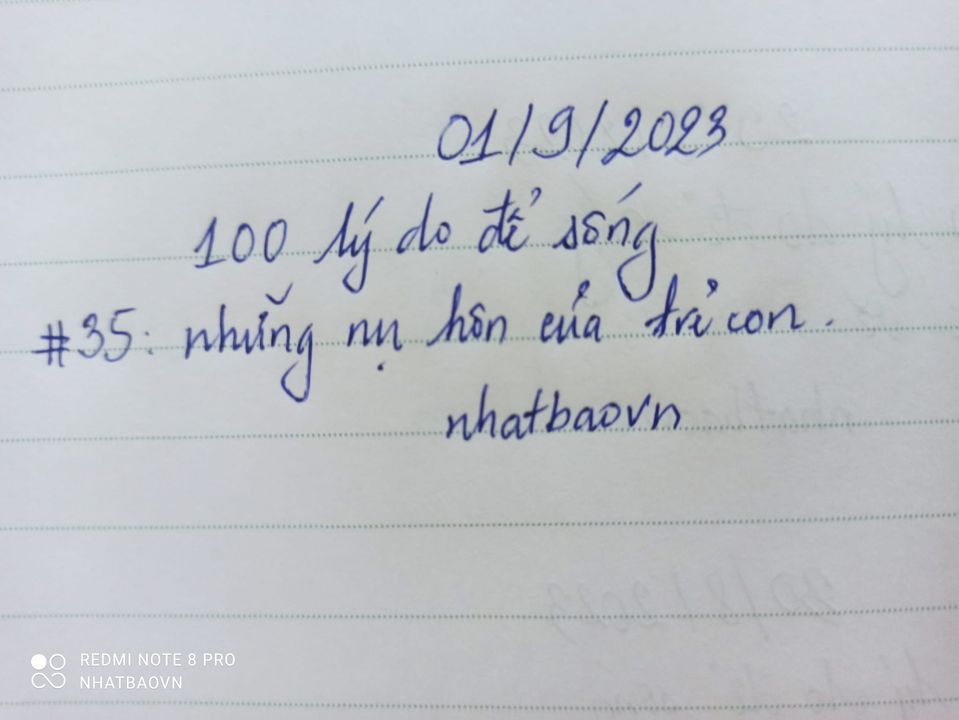 01/9/2023
100 lý do để sống
#35: những nụ hôn của trẻ con.
nhatbaovn
REDMI NOTE 8 PRO
NHATBAOVN